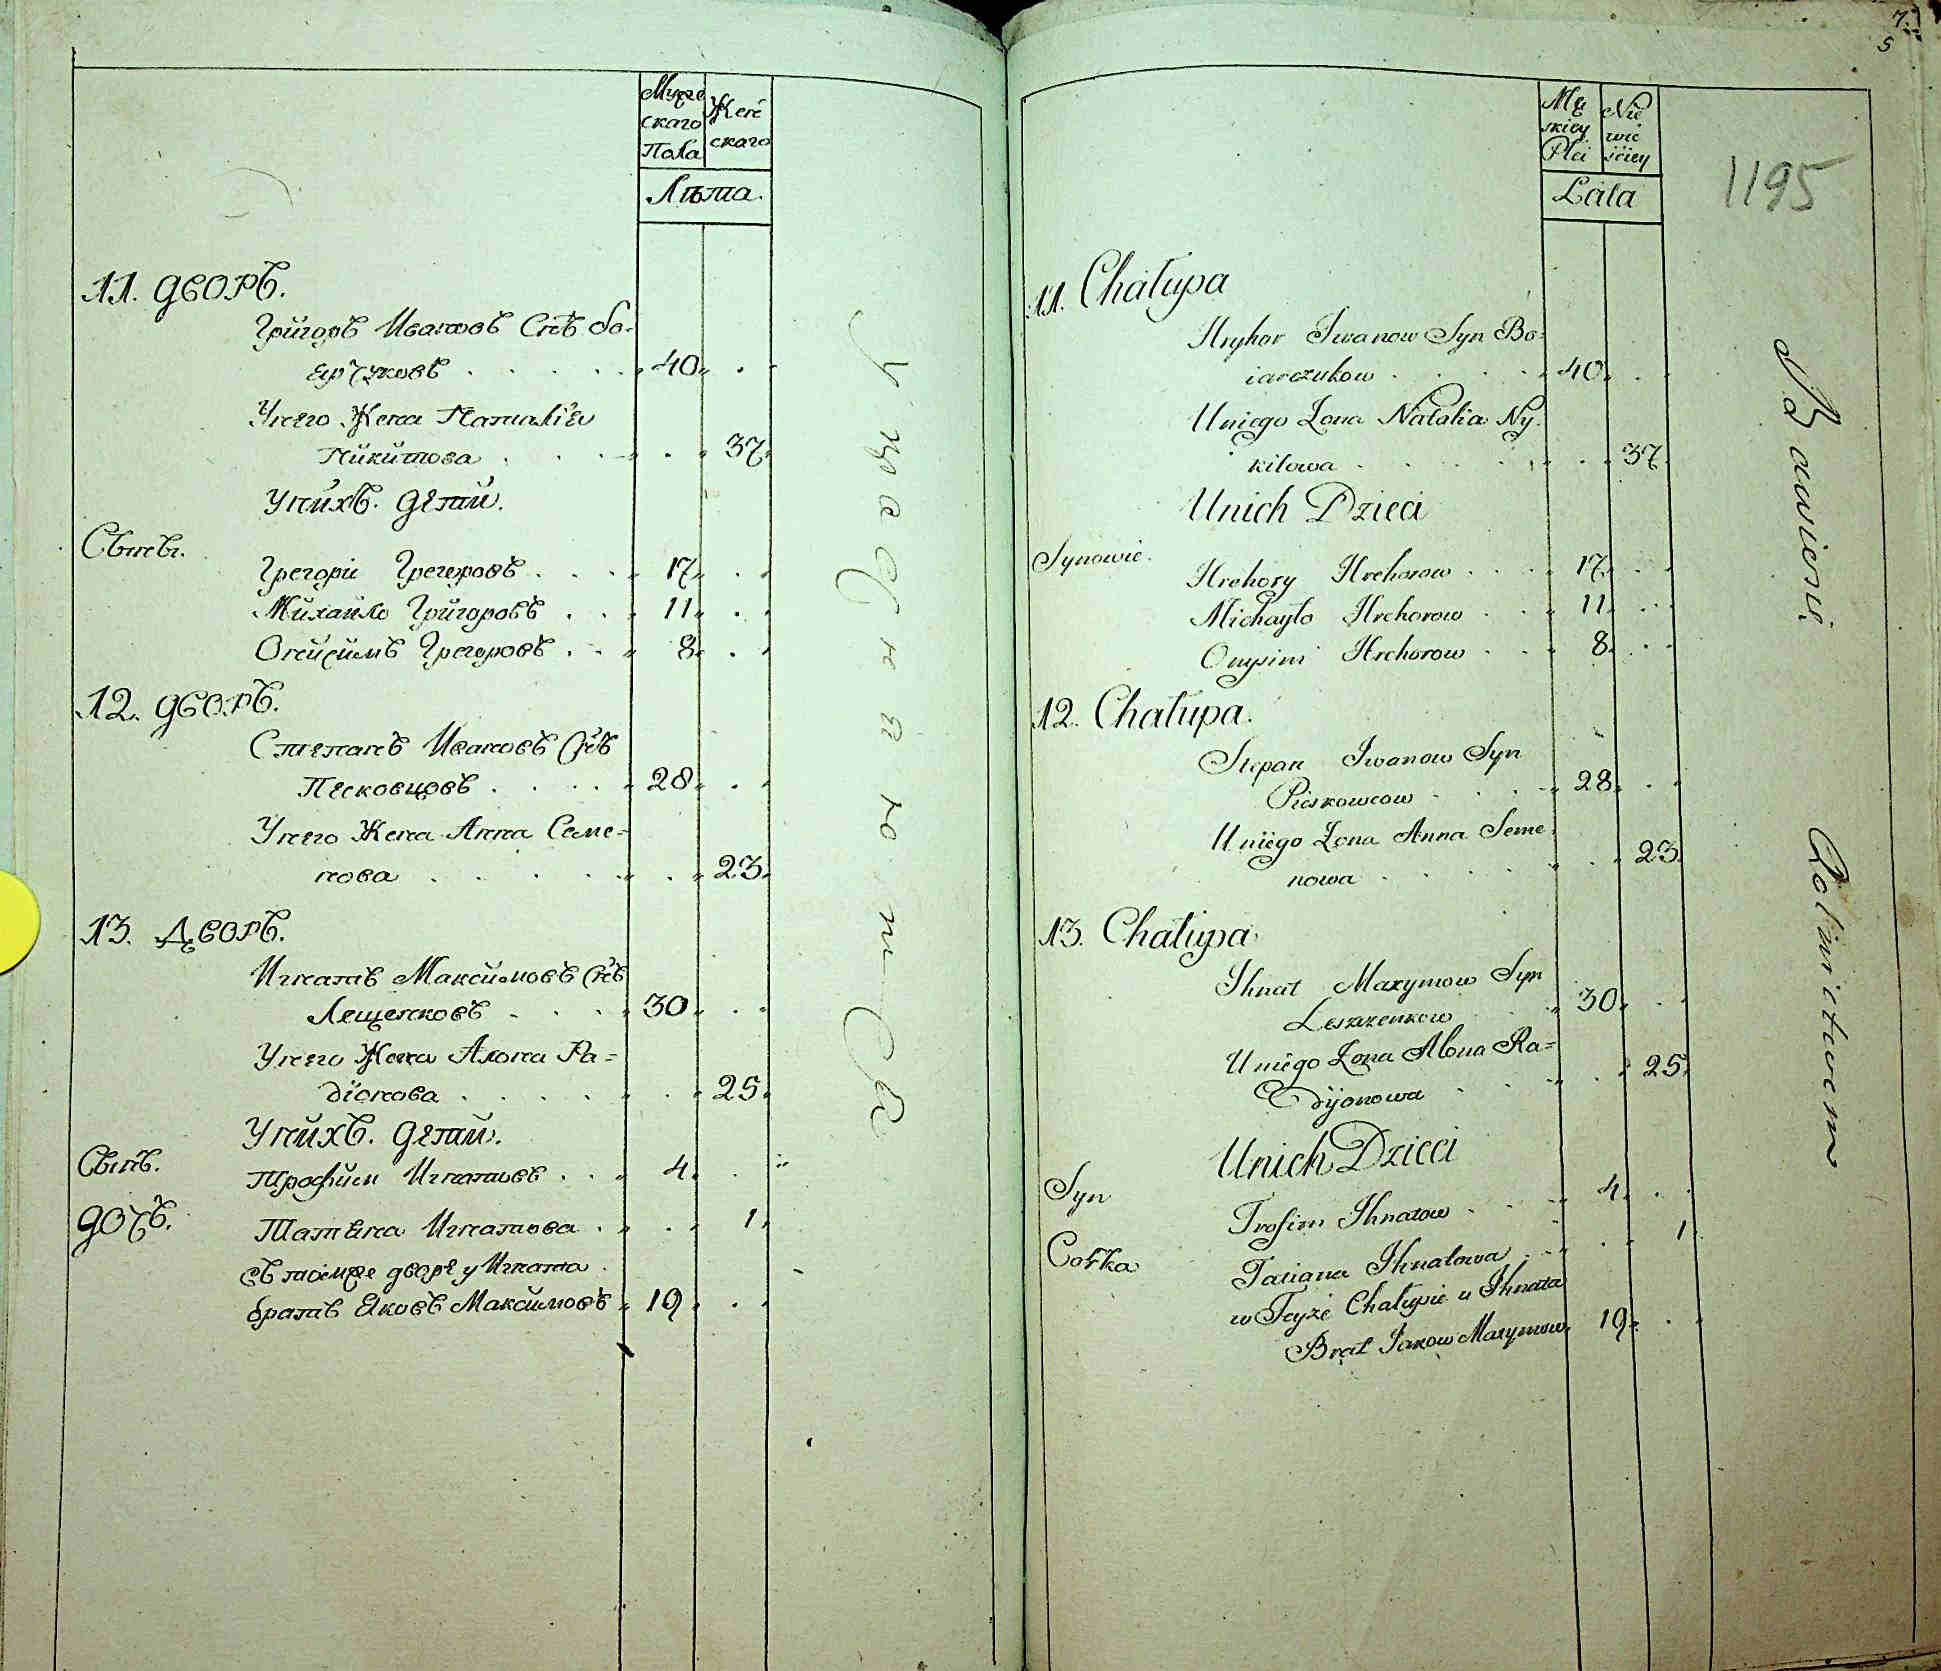 Мужескаго Пола
Женскаго
Лѣта.
11. дворъ.
Григоръ Ивановъ Снъ Бо-
ярчуковъ 40
Унего Жена Наталія
Никитова 37
Унихъ. дети.
Сыны.
Грегори Грегоровъ 17
Михайло Григоровъ 11
Онисимъ Грегоровъ 8
12. дворъ.
Степанъ Ивановъ Снъ
Песковцовъ 28
Унего Жена Анна Семе-
нова 23
13. Дворъ.
Игнатъ Максимовъ Снъ
Лещенковъ 30
Унего Жена Алона Ра-
діонова 25
Унихъ. дети.
Сынъ.
Трофим Игнатовъ 4
дочъ.
Татяна Игнатова 1
въ томже дворе у Игната
братъ Яковъ Максимовъ 19
Упражняются
7
5
1195
Męskiey Plci
Niewieściey
Lata
11. Chałupa
Hryhor Iwanow Syn Bo-
iarczukow 40
Uniego Żona Natalia Ny-
kitowa 37
Unich Dzieci
Synowie.
Hrehory Hrehorow 17
Michayło Hrehorow 11
Onysim Hrehorow 8
12. Chałupa.
Stepan Iwanow Syn
Pieskowcow 28
Uniego Żona Anna Seme-
nowa 23
13. Chałupa
Ihnat Maxymow Syn
Leszzenkow 30
Uniego Żona Alona Ra=
dyjonowa 25
Unich Dzieci
Syn
Trofim Ihnatow 4
Corka
Tatiana Ihnatowa 1
w Teyże Chałupie u Ihnata
Brat Jakow Maxymow 19
Bawieni Rolnictwem